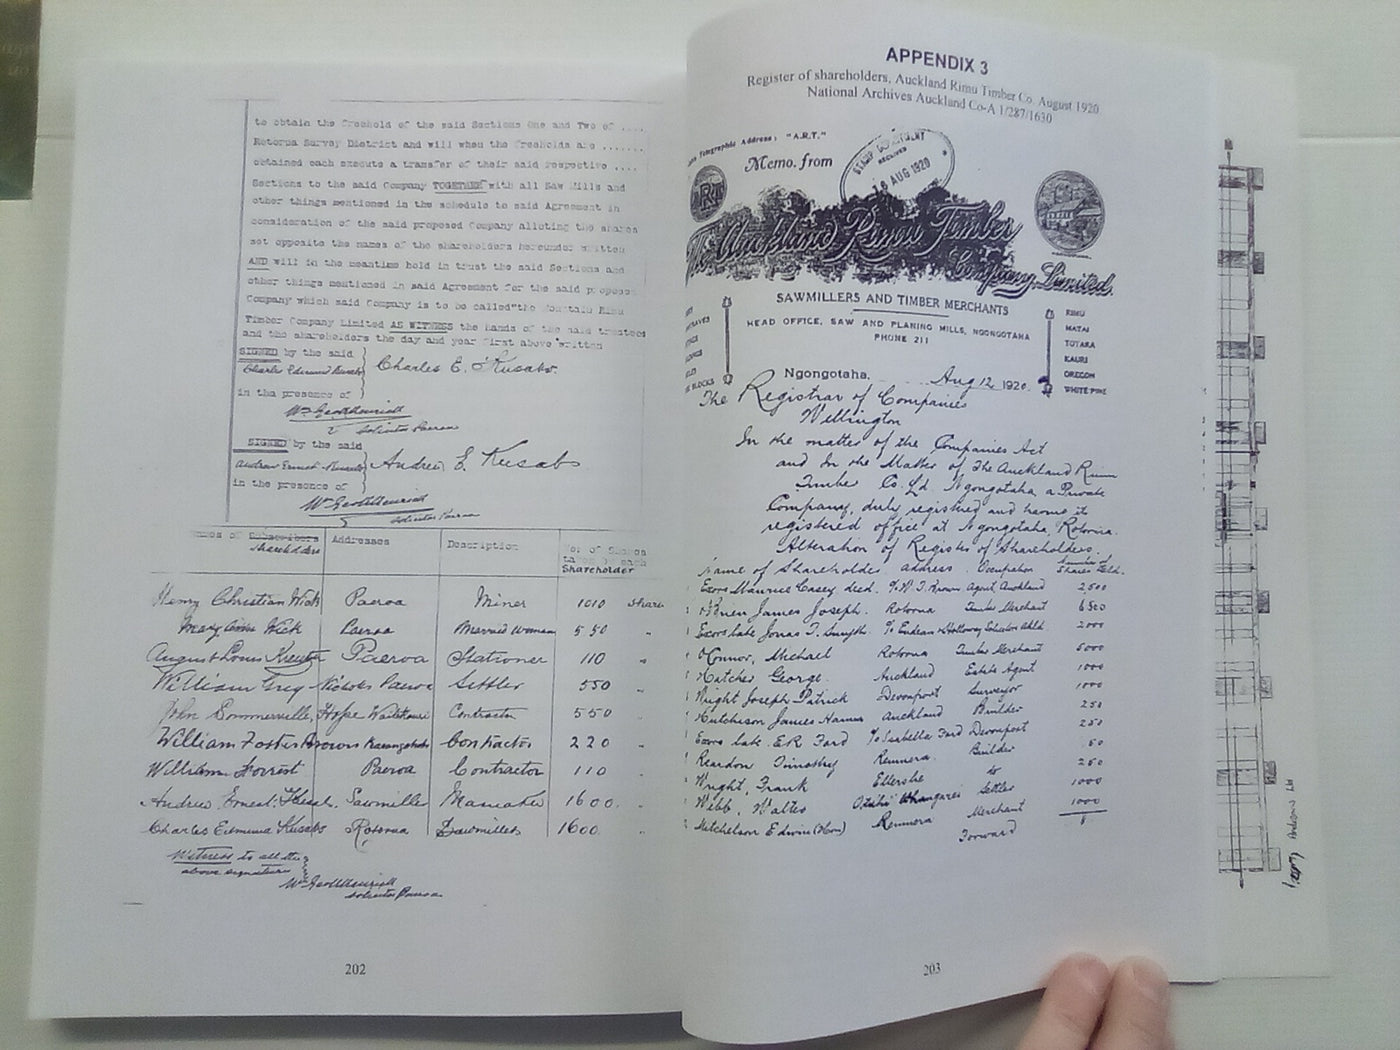 to obtain the freehold of the said Sections One and Two of ....
Rotorua Survey District and will when the freeholds are .......
obtained each execute a transfer of their said respective ....
Sections to the said Company TOGETHER with all Saw Mills and
other things mentioned in the schedule to said Agreement in
consideration of the said proposed Company alloting the shares
set opposite the names of the shareholders hereunder written
AND will in the meantime hold in trust the said Sections and
other things mentioned in said Agreement for the said
Company which said Company is to be called "the Rimu
Timber Company Limited AS WITNESS the hands of the said trustees
and the shareholders the day and year first above written
SIGNED by the said
Charles Edmund Kusabs
Charles E. Kusabs.
in the presence of
Solicitor Paeroa
SIGNED by the said
Andrew Ernest Kusabs
Andrew E. Kusabs
in the presence of
Solicitor Paeroa
Names of Subscribers Shareholders Addresses Description No. of Shares taken by each Shareholder
Henry Christian Wick Paeroa Miner 1010 shares
Mary Wick Paeroa Married Woman 550 "
August Louis Paeroa Stationer 110 "
William Grey Nicholas Paeroa Settler 550 "
John Sommerville, Contractor 550 "
William Foster Brown Contractor 220 "
William Forrest Paeroa Contractor 110 "
Andrew Ernest Kusabs Sawmiller Mamaku 1600 "
Charles Edmund Kusabs Rotorua Sawmiller 1600 "
Witness to all the
above signatures
Solicitor Paeroa
202
APPENDIX 3
Register of shareholders, Auckland Rimu Timber Co. August 1920
National Archives Auckland Co-A 1/287/1630
Telegraphic Address: "A.R.T."
Memo. from
STAMP DEPARTMENT
RECEIVED
16 AUG 1920
ART
The Auckland Rimu Timber
Company, Limited.
SAWMILLERS AND TIMBER MERCHANTS
HEAD OFFICE, SAW AND PLANING MILLS, NGONGOTAHA
PHONE 211
BLOCKS
RIMU
MATAI
TOTARA
KAURI
OREGON
WHITE PINE
Ngongotaha, Aug 12, 1920.
The Registrar of Companies
Wellington
In the matter of the Companies Act
and In the Matter of The Auckland Rimu
Timber Co. Ld. Ngongotaha, a Private
Company, duly registered and having its
registered office at Ngongotaha, Rotorua.
Alteration of Register of Shareholders.
Name of Shareholder Address Occupation Number of Shares Held.
Exors Maurice Casey decd. Agent Auckland 2500
O'Brien James Joseph. Rotorua Timber Merchant 6500
Exors late Jonas T. Smyth Solicitor Akld 2000
O'Connor, Michael Rotorua Timber Merchant 5000
Hatcher George. Auckland Estate Agent 1000
Wright Joseph Patrick Devonport Surveyor 1000
Hutchison James Auckland Builder 250
Exors late E.R. Ford c/o Isabella Ford Devonport 250
Reardon Timothy Remuera Builder 50
Wright, Frank Ellerslie do 250
Webb, Walter Whangarei Settler 1000
Mitchelson Edwin (Hon) Remuera Merchant 1000
Forward
203